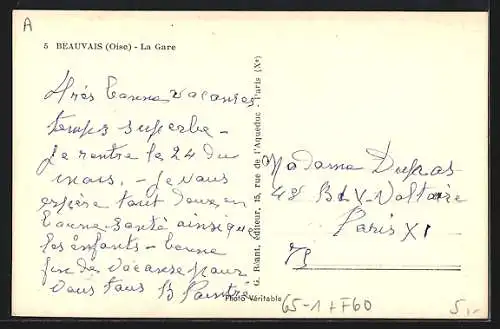 A
5 BEAUVAIS (Oise) - La Gare
Très bonne vacances
temps superbe -
Je rentre le 24 du
mois, - Je vous
espère tout deux en
bonne santé ainsi que
les enfants - bonne
fin de vacance pour
vous tous B
G. Réant, éditeur, 15, rue de l'Aqueduc - Paris (Xe)
Madame Dupras
48 BLV-Voltaire
Paris XI
75
Photo Véritable
65-1+F60
5,-